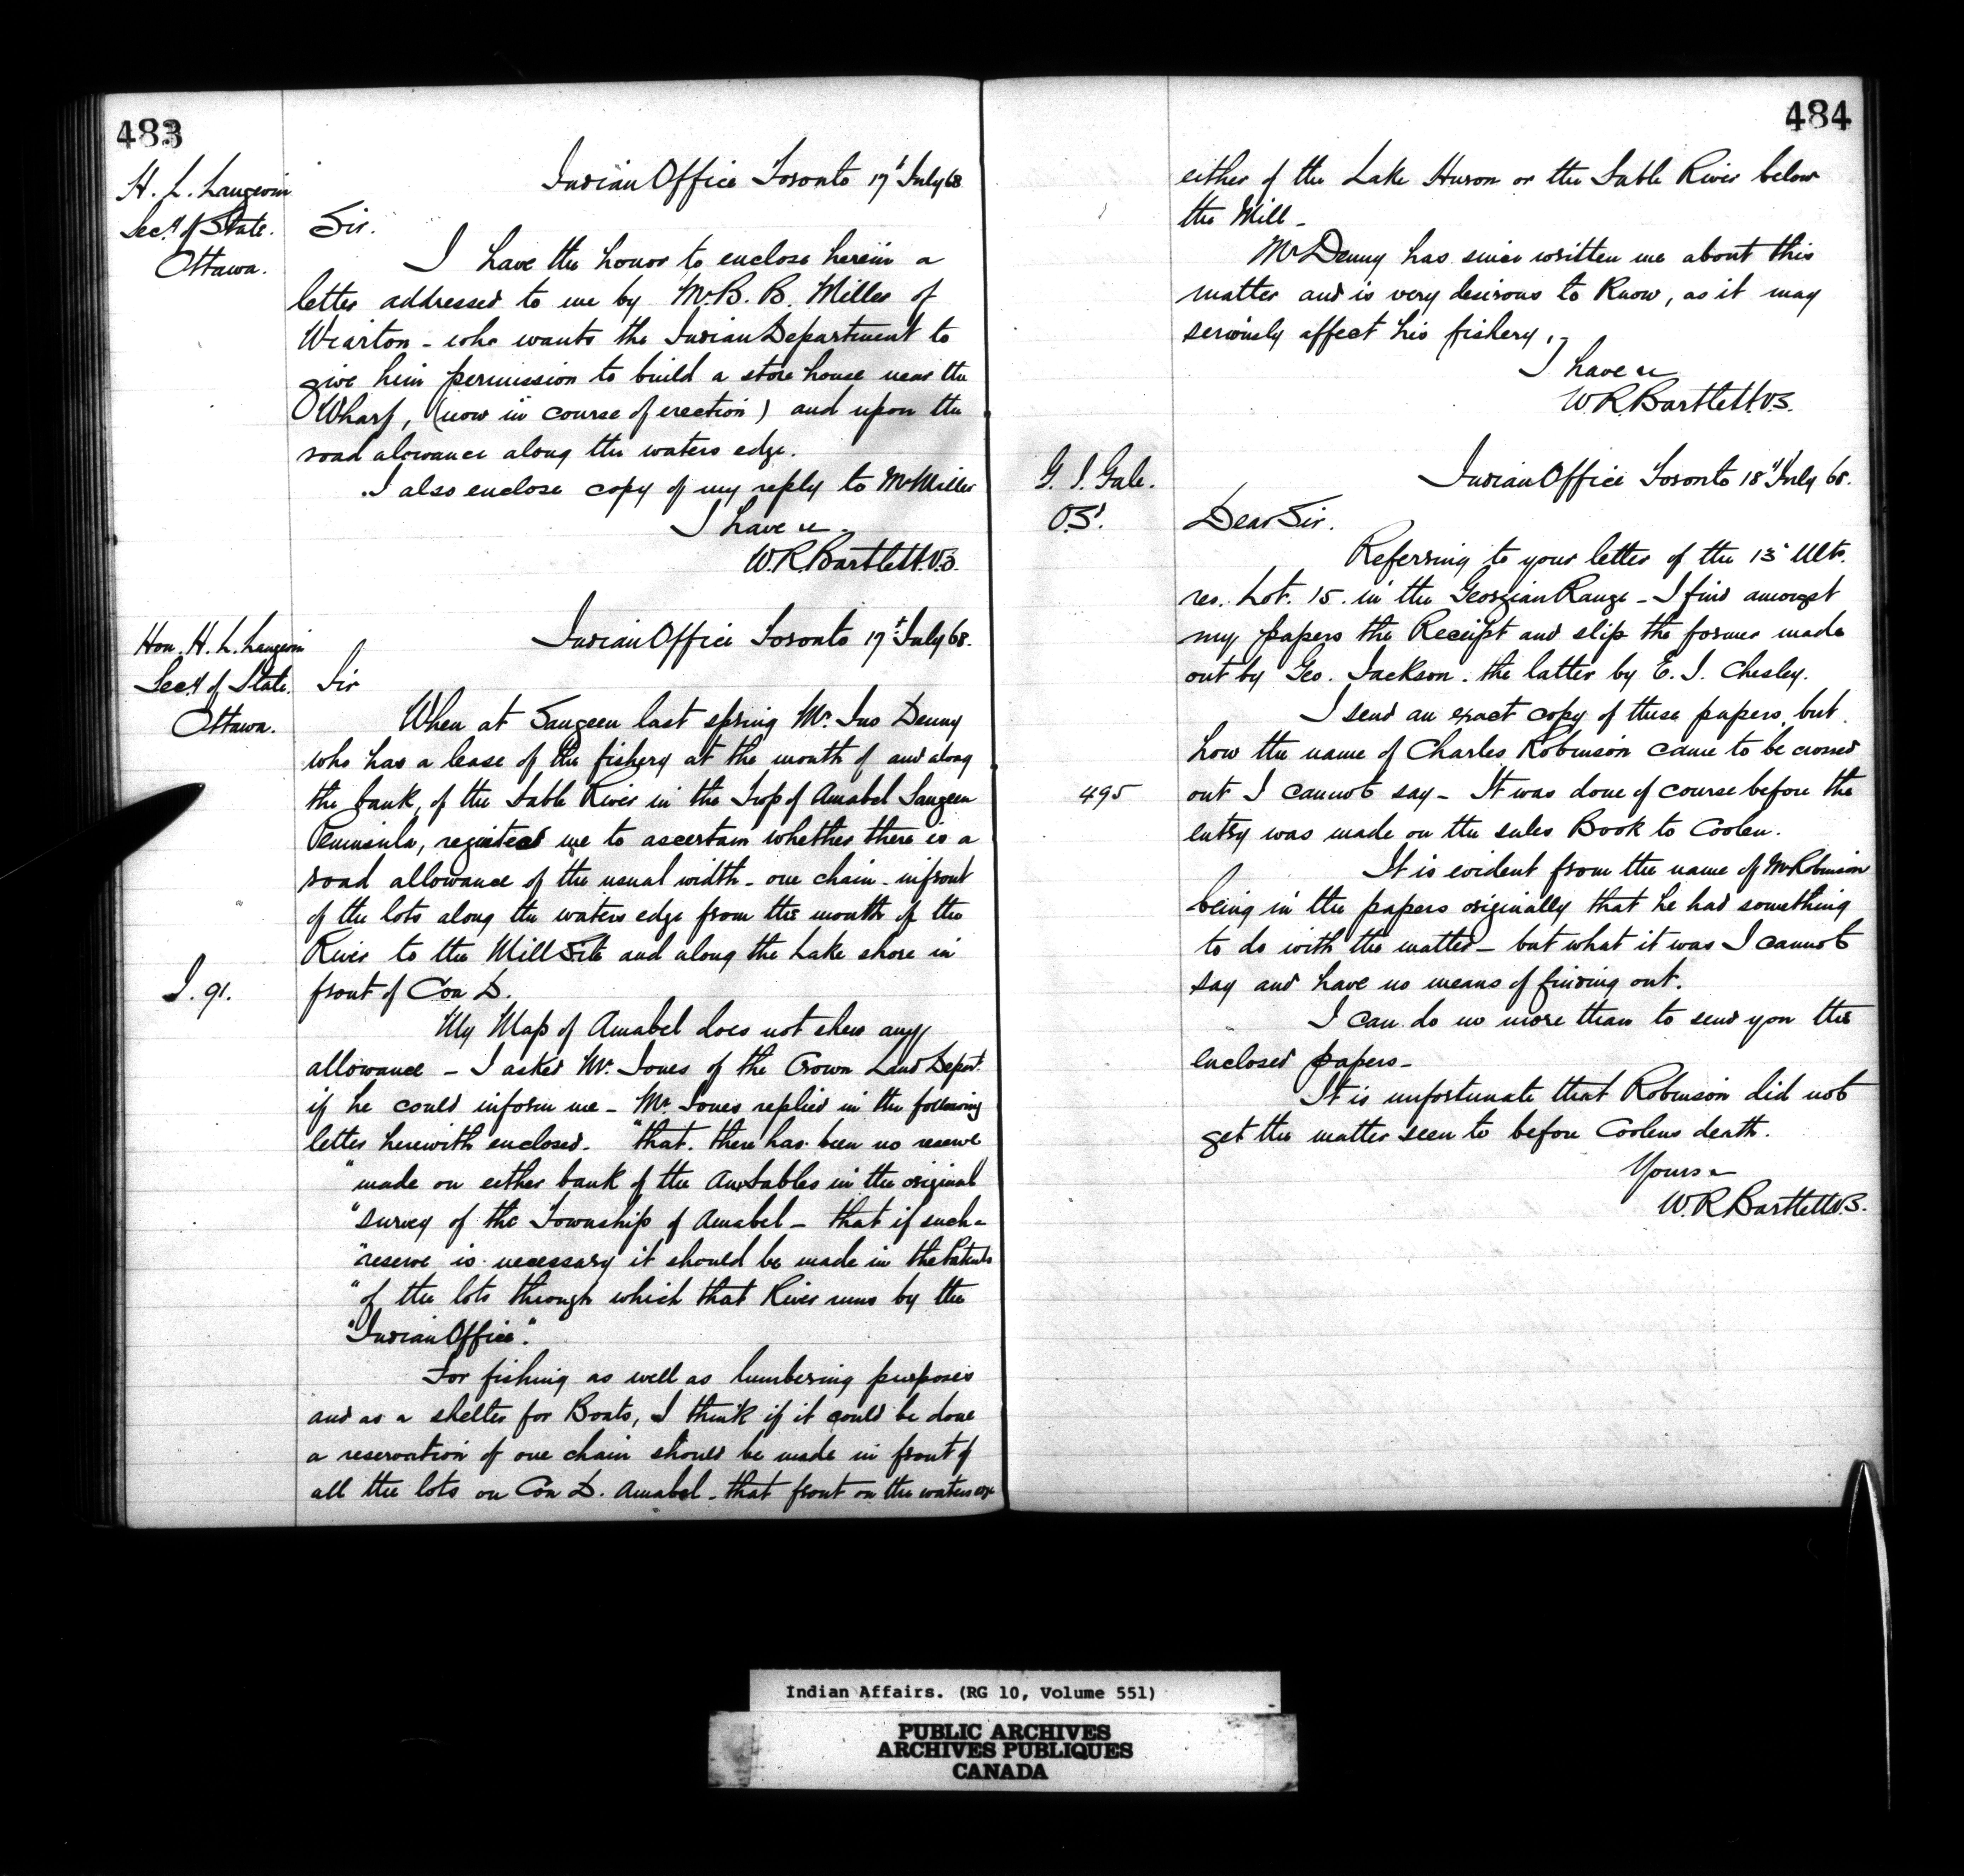 483
H. L. Langevin
Secy of State.
Ottawa.
Indian Office Toronto 17t July 68
Sir.
I have the honor to enclose herein a
letter addressed to me by Mr B. B. Miller of
Wiarton - who wants the Indian Department to
give him permission to build a store house near the
Wharf, (now in course of erection) and upon the
road alowance along the waters edge.
I also enclose copy of my reply to Mr Miller
I have &c.
W. R. Bartlett. V.S.
Hon. H. L. Langevin
Secy of State.
Ottawa.
Indian Office Toronto 17t July 68.
Sir
When at Saugeen last spring Mr. Jno Denny
who has a lease of the fishery at the mouth of and along
the bank, of the Sable River in the Twp of Amabel Saugeen
Peninsula, requested me to ascertain whether there is a
road allowance of the usual width - one chain - infront
of the lots along the waters edge from the mouth of the
River to the Mill Site and along the Lake shore in
I. 91.
front of Con D.
My Map of Amabel does not shew any
allowance - I asked Mr. Jones of the Crown Land Depart.
if he could inform me - Mr. Jones replied in the following
letter herewith enclosed. "that. there has been no reserve
"made on either bank of the Au Sables in the original
"survey of the Township of Amabel - that if such
"reserve is necessary it should be made in the Patents
"of the lots through which that River runs by the
"Indian Office".
For fishing as well as lumbering purposes
and as a shelter for Boats, I think if it could be done
a reservation of one chain should be made in front of
all the lots on Con D. Amabel - that front on the waters edge
484
either of the Lake Huron or the Sable River below
the Mill -
Mr Denny has since written me about this
matter and is very desirous to Know, as it may
seriously affect his fishery.
I have &c
W. R. Bartlett. V.S.
G. J. Gale.
O.Sd.
Indian Office Toronto 18th July 68.
Dear Sir.
Referring to your letter of the 13th Ulto.
res. Lot. 15. in the Georgian Range - I find amongst
my papers the Receipt and slip the former made
out by Geo. Jackson. the latter by E. J. Chesley.
I send an exact copy of these papers, but
how the name of Charles Robinson came to be crossed
495
out I cannot say - It was done of course before the
entry was made on the sales Book to Coolen.
It is evident from the name of Mr Robinson
being in the papers originally that he had something
to do with the matter - but what it was I cannot
say and have no means of finding out.
I can do no more than to send you the
enclosed papers -
It is unfortunate that Robinson did not
get the matter seen to before Coolens death.
Yours &
W. R Bartlett V.S.
Indian Affairs. (RG 10, Volume 551)
PUBLIC ARCHIVES
ARCHIVES PUBLIQUES
CANADA